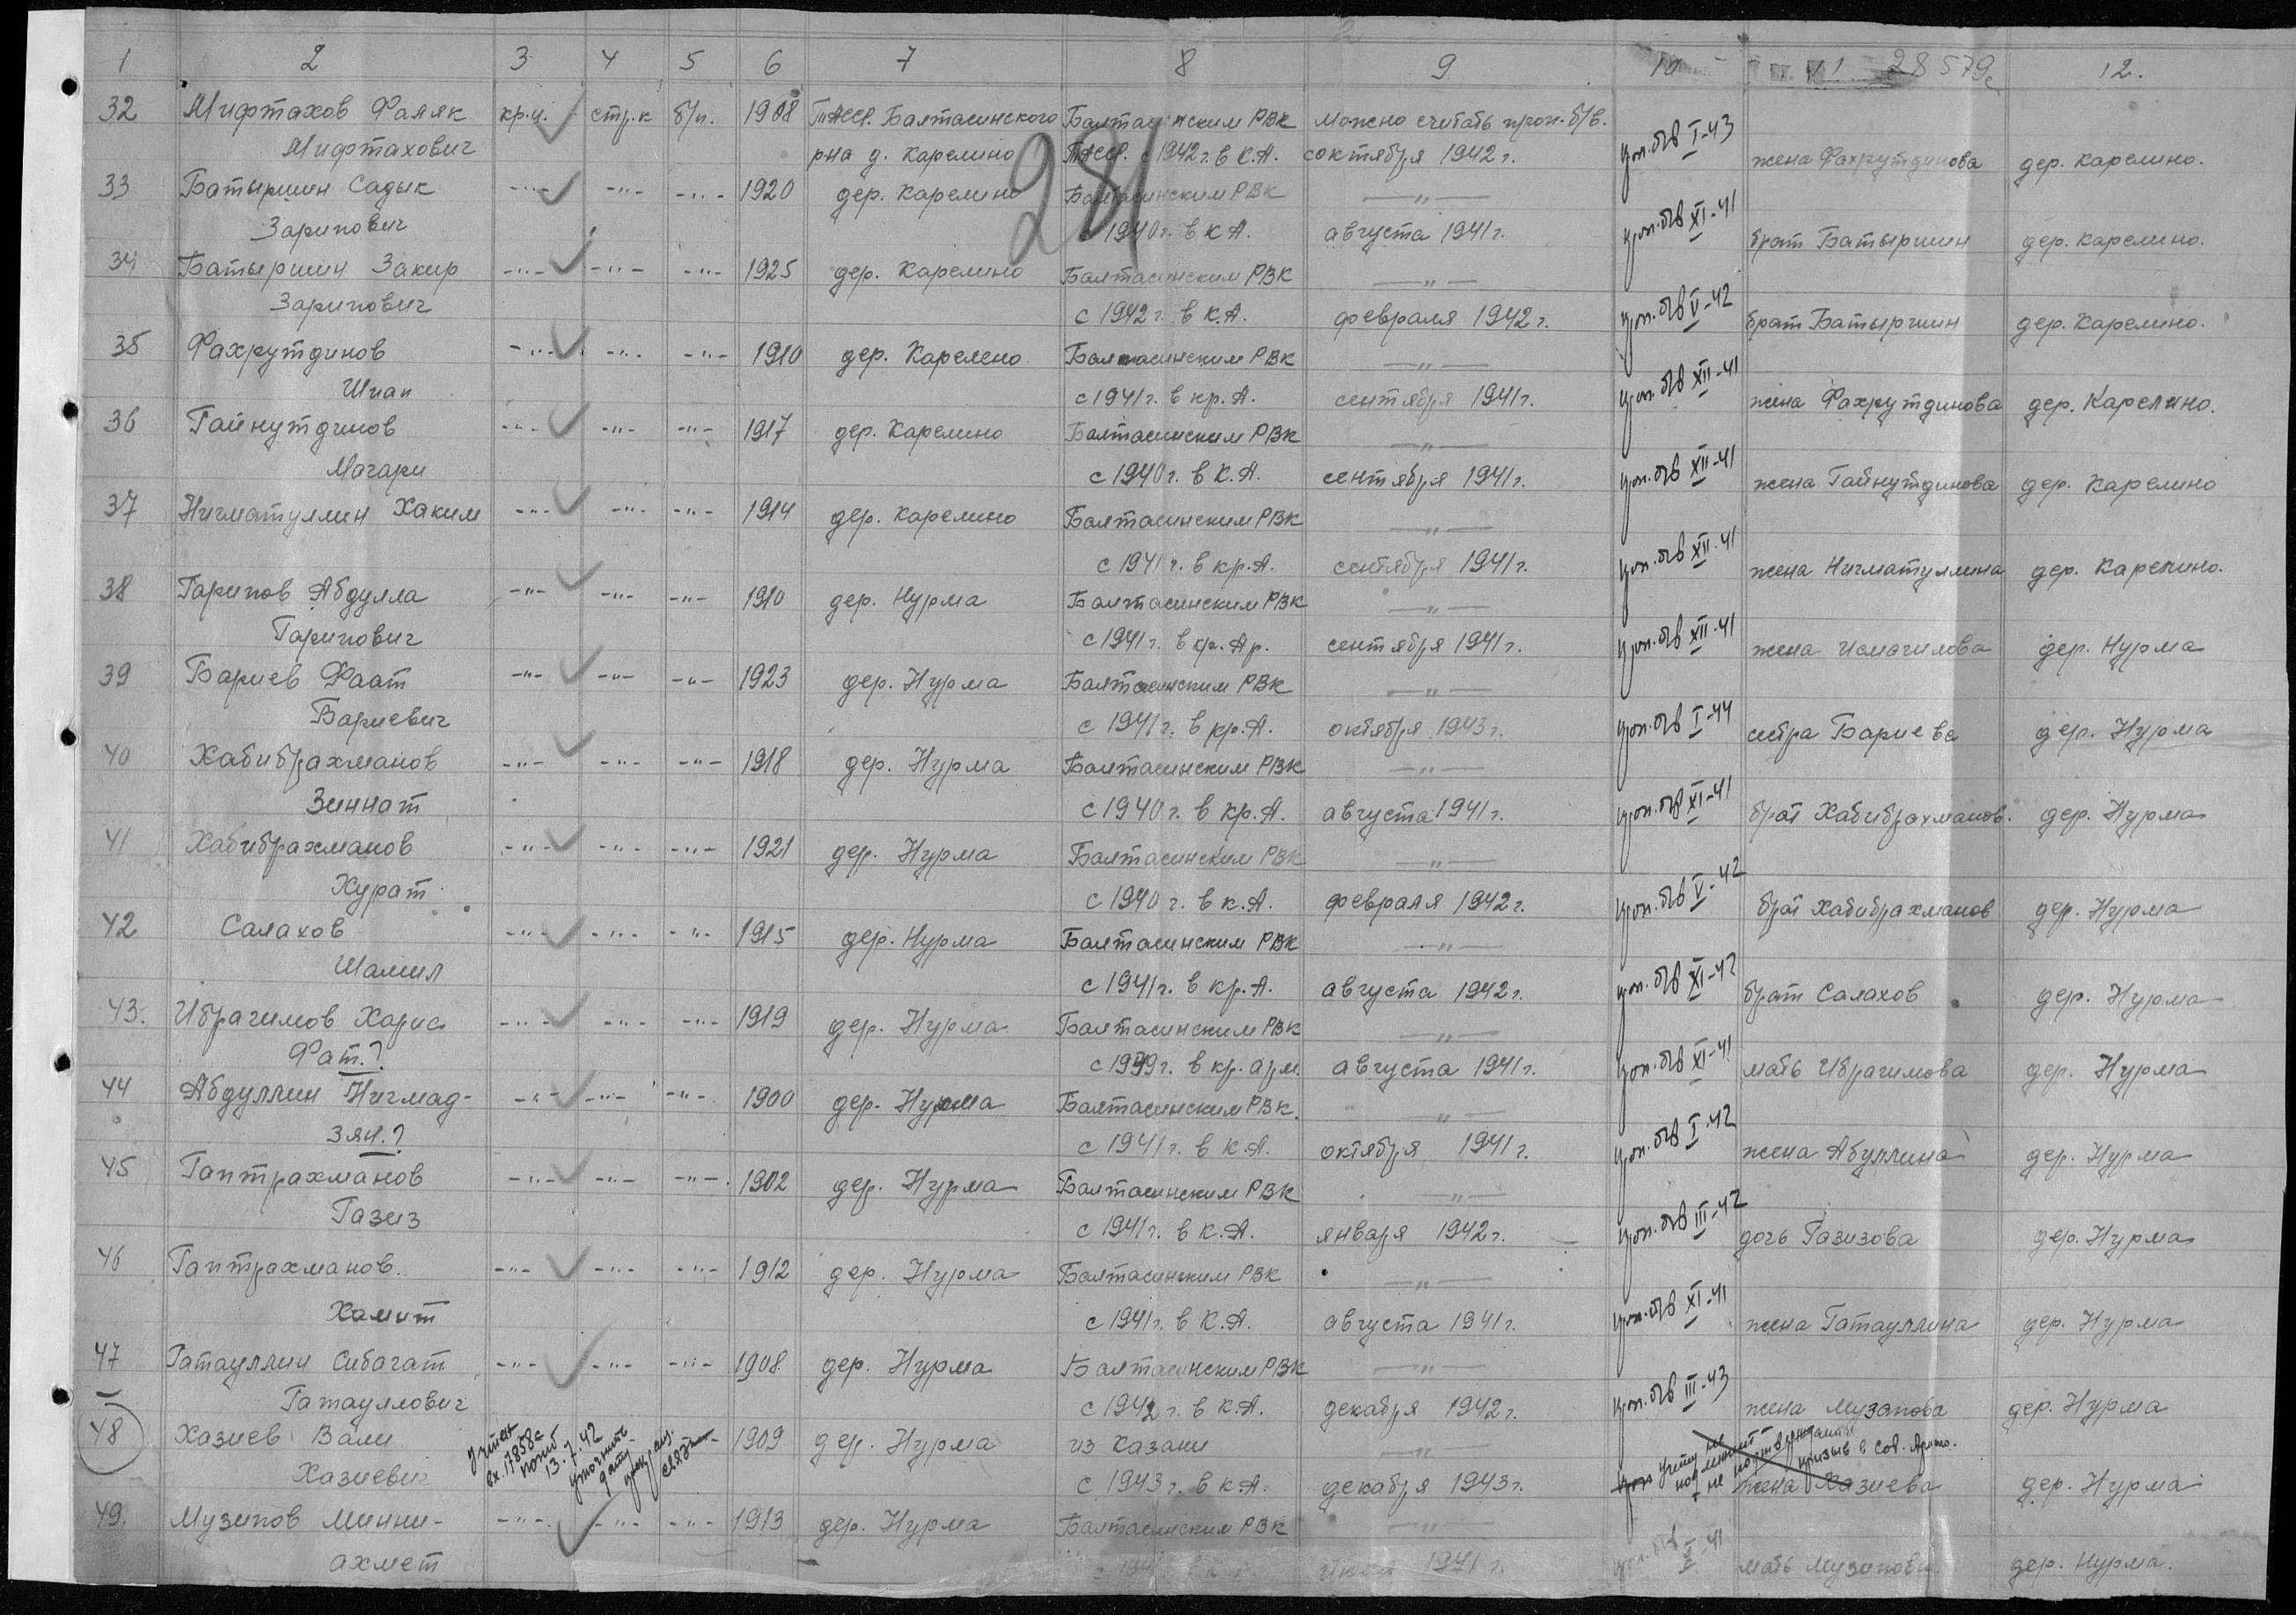 1 2 3 4 5 6 7 8 9 10 11 28579с 12.
281
32 Мифтахов Фаляк кр-ц. стр.к б/п. 1908 ТАССР. Балтасинского Балтасинским РВК можно считать проп. б/в. проп. б/в I-43
Мифтахович рна д. Карелино ТАССР. с 1942 г. в К.А. с октября 1942 г. жена Фахрутдинова дер. Карелино.
33 Батыршин Садык -"- -"- -"- 1920 дер. Карелино Балтасинским РВК -"- проп. б/в XI-41
Зарипович с 1940 г. в К.А. августа 1941 г. брат Батыршин дер. Карелино.
34 Батыршин Закир -"- -"- -"- 1925 дер. Карелино Балтасинским РВК -"- проп. б/в V-42
Зарипович с 1942 г. в К.А. февраля 1942 г. брат Батыршин дер. Карелино.
35 Фахрутдинов -"- -"- -"- 1910 дер. Карелено Балтасинским РВК -"- проп. б/в XII-41
Шиап с 1941 г. в кр. А. сентября 1941 г. жена Фахрутдинова дер. Карелино.
36 Гайнутдинов -"- -"- -"- 1917 дер. Карелино Балтасинским РВК -"- проп. б/в XII-41
Магари с 1940 г. в К.А. сентября 1941 г. жена Гайнутдинова дер. Карелино
37 Нигматуллин Хаким -"- -"- -"- 1914 дер. Карелино Балтасинским РВК -"- проп. б/в XII-41
с 1941 г. в кр. А. сентября 1941 г. жена Нигматуллина дер. Карелино.
38 Гарипов Абдулла -"- -"- -"- 1910 дер. Нурма Балтасинским РВК -"- проп. б/в XII-41
Гарипович с 1941 г. в кр. Ар. сентября 1941 г. жена Исмагилова дер. Нурма
39 Бариев Фаат -"- -"- -"- 1923 дер. Нурма Балтасинским РВК -"- проп. б/в I-44
Бариевич с 1941 г. в кр. А. октября 1943 г. сестра Бариева дер. Нурма
40 Хабибрахманов -"- -"- -"- 1918 дер. Нурма Балтасинским РВК -"- проп. б/в XI-41
Зиннат с 1940 г. в кр. А. августа 1941 г. брат Хабибрахманов. дер. Нурма
41 Хабибрахманов -"- -"- -"- 1921 дер. Нурма Балтасинским РВК -"- проп. б/в V-42
Хурат с 1940 г. в К.А. февраля 1942 г. брат Хабибрахманов дер. Нурма
42 Салахов -"- -"- -"- 1915 дер. Нурма Балтасинским РВК -"- проп. б/в XI-42
Шамил с 1941 г. в кр. А. августа 1942 г. брат Салахов дер. Нурма
43. Ибрагимов Харис -"- -"- -"- 1919 дер. Нурма Балтасинским РВК -"- проп. б/в XI-41
Фат.? с 1939 г. в кр. арм. августа 1941 г. мать Ибрагимова дер. Нурма
44 Абдуллин Нигмад- -"- -"- -"- 1900 дер. Нурма Балтасинским РВК. -"- проп. б/в I-42
зян.? с 1941 г. в К.А. октября 1941 г. жена Абуллина дер. Нурма
45 Гаптрахманов -"- -"- -"- 1902 дер. Нурма Балтасинским РВК -"- проп. б/в III-42
Газиз с 1941 г. в К.А. января 1942 г. дочь Газизова дер. Нурма
46 Гаптрахманов -"- -"- -"- 1912 дер. Нурма Балтасинским РВК -"- проп. б/в XI-41
Хамит с 1941 г. в К.А. августа 1941 г. жена Гатауллина дер. Нурма
47 Гатауллин Сибагат -"- -"- -"- 1908 дер. Нурма Балтасинским РВК -"- проп. б/в III-43
Гатауллович с 1942 г. в К.А. декабря 1942 г. жена Музапова дер. Нурма
48 Хазиев Вали учтен вх. 17858с погиб 13.7.42 уточнить дату 1909 дер. Нурма из Казани -"- учету не подлежит не подтвержден призыв в Сов. Армию.
Хазиевич с 1943 г. в К.А. декабря 1943 г. жена Хазиева дер. Нурма
49. Музипов Минни- -"- -"- -"- 1913 дер. Нурма Балтасинским РВК -"- проп. б/в X-41
ахмет 1941 г. мать Музипова дер. Нурма.